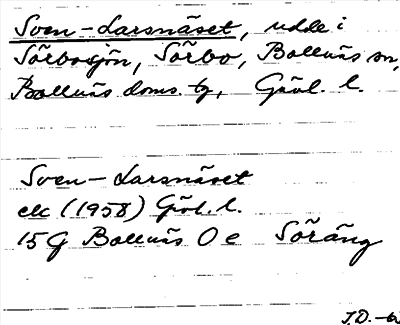 Sven-Larsnäset, udde i
Sörbosjön, Sörbo, Bollnäs sn,
Bollnäs doms. tg, Gävl. l.
Sven-Larsnäset
ek (1958) Gävl. l.
15G Bollnäs O e Söräng
J.D.-62